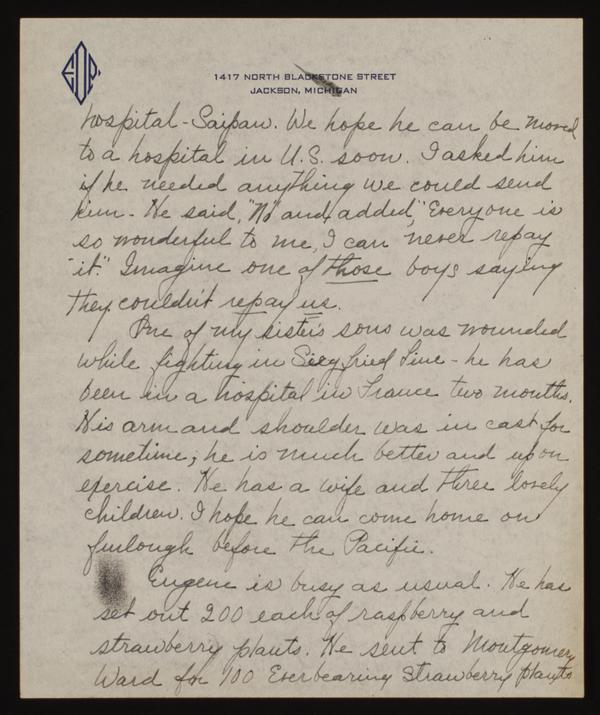 EDP
1417 NORTH BLACKSTONE STREET
JACKSON, MICHIGAN
hospital - Saipan. We hope he can be moved
to a hospital in U.S. soon. I asked him
if he needed anything we could send
him - He said, "No" and added, "Everyone is
so wonderful to me, I can never repay
it." Imagine one of those boys saying
they couldn't repay us.
One of my sister's sons was wounded
while fighting in Siegfried Line - he has
been in a hospital in France two months.
His arm and shoulder was in cast for
sometime, he is much better and up on
exercise. He has a wife and three lovely
children. I hope he can come home on
furlough before the Pacific.
Eugene is busy as usual. He has
set out 200 each of raspberry and
strawberry plants. He sent to Montgomery
Ward for 100 Everbearing Strawberry plants